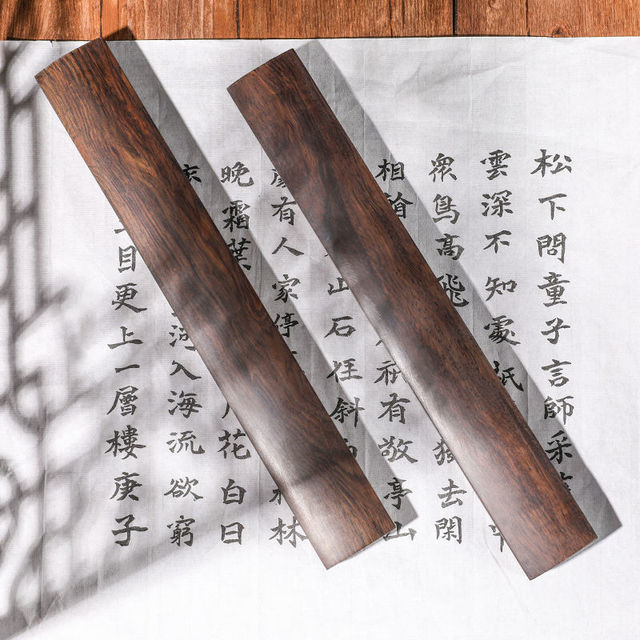 松下問童子言師采
雲深不知處祇
衆鳥高飛去閑
相有敬亭山
山石径斜
有人家停林
晚霜葉花白日
入海流欲窮
目更上一層樓庚子